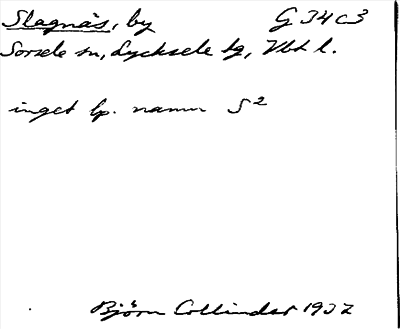 Slagnäs, by G J4 c3
Sorsele sn, Lycksele lg, Vbt l.
inget lp. namn S²
Björn Collinder 1932